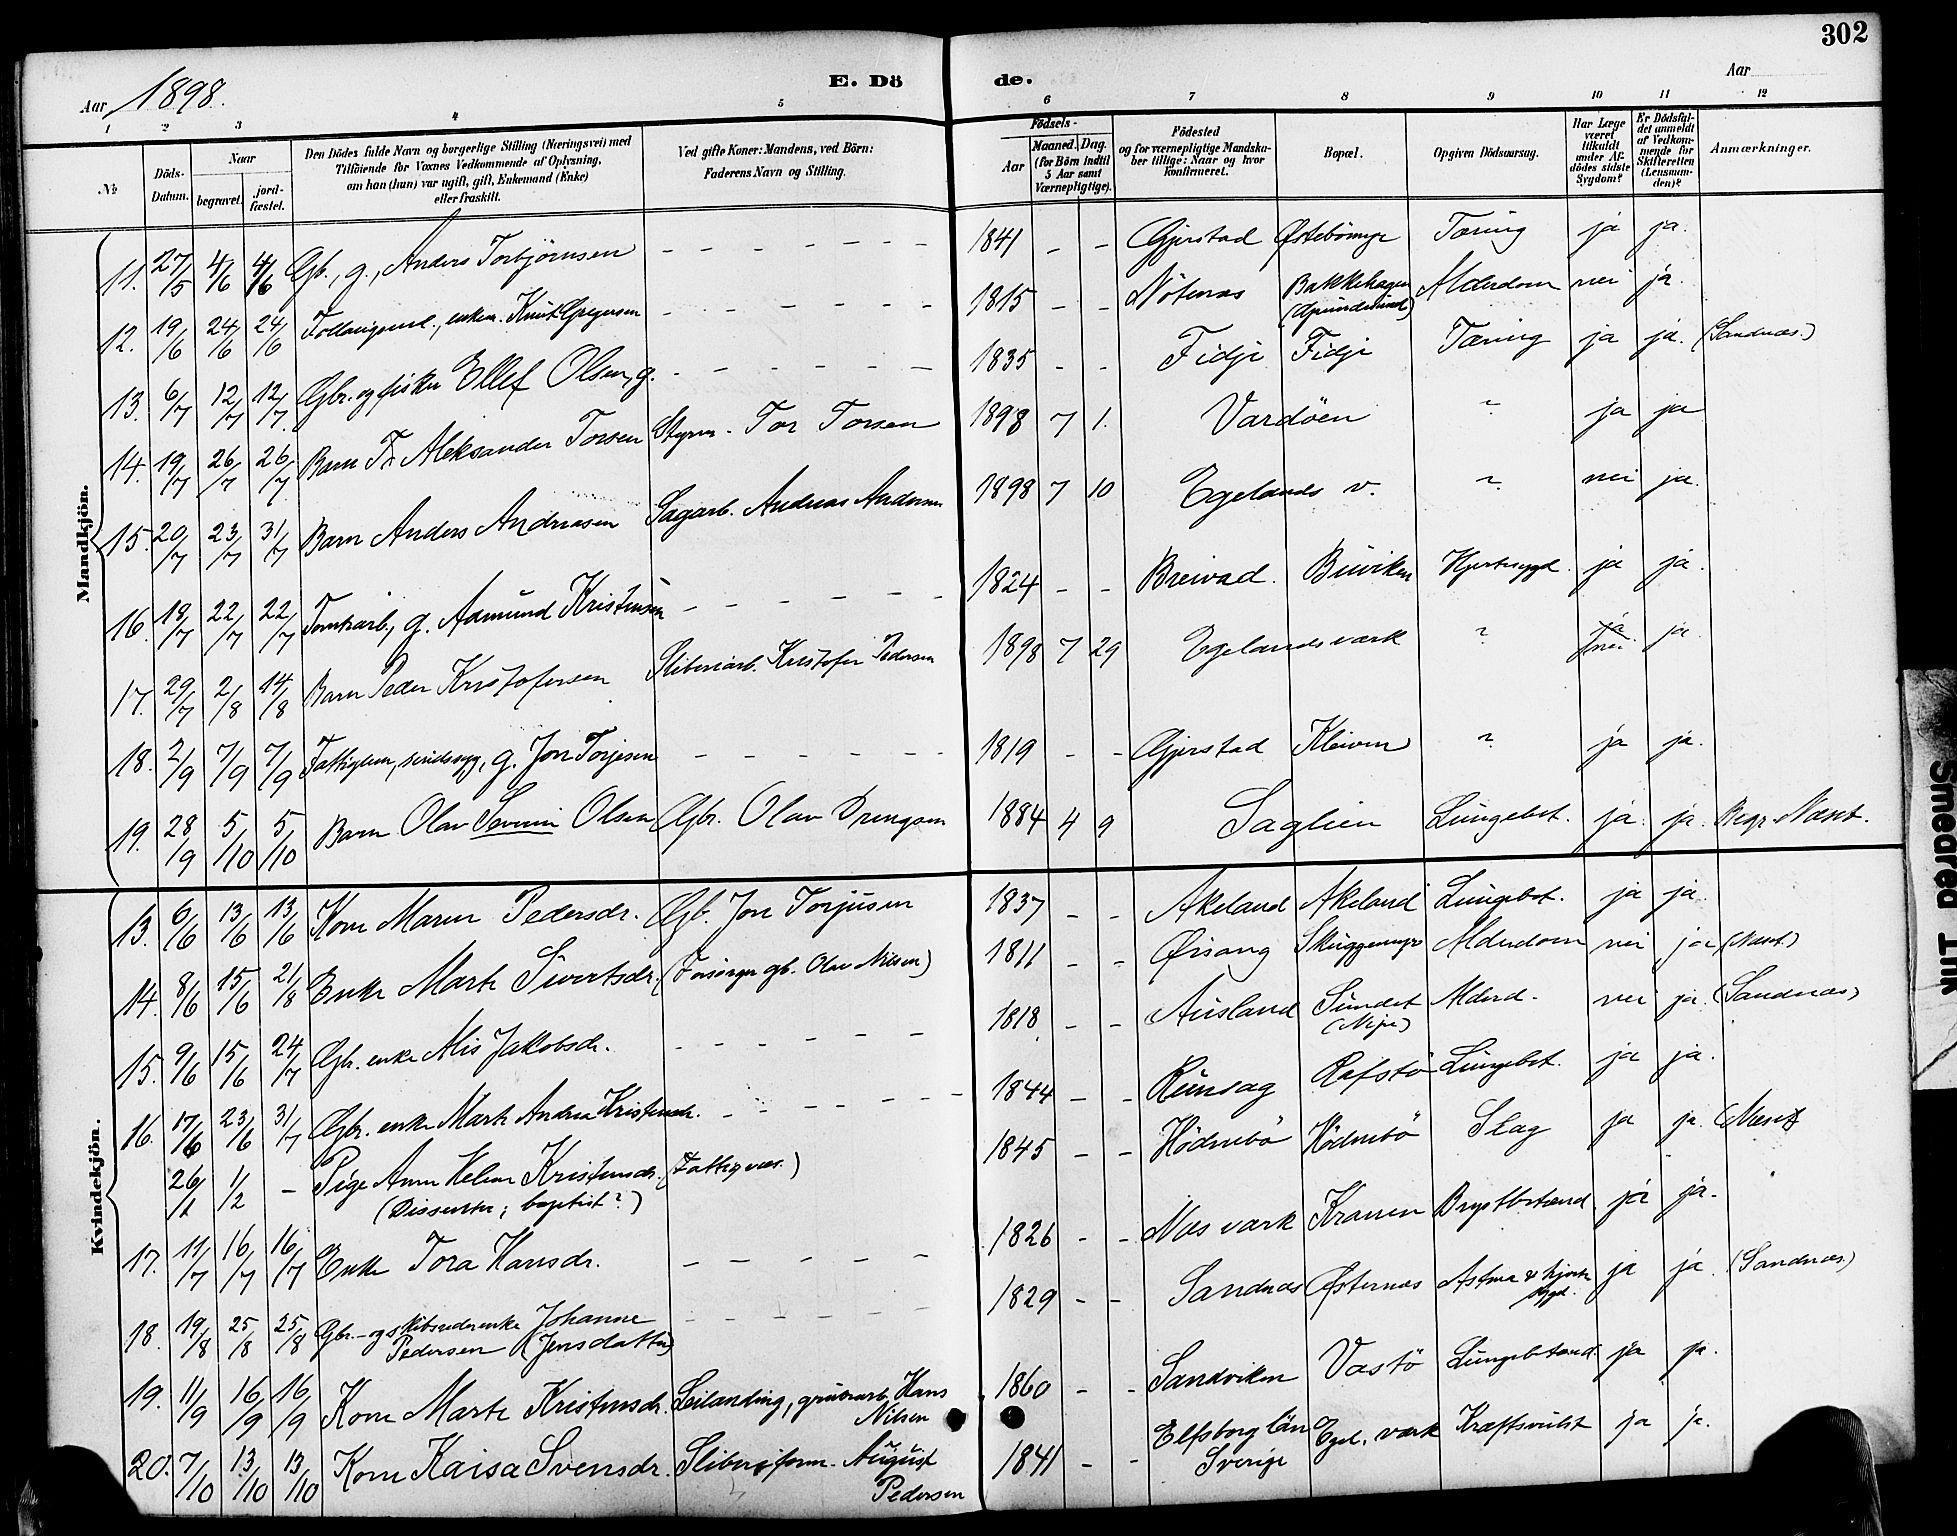 302
Aar 1898. E. Dö de. Aar
1 2 3 4 5 6 7 8 9 10 11 12
№ Döds-Datum. Naar begravet. jordfæstet. Den Dödes fulde Navn og borgerlige Stilling (Næringsvei) med Tilföiende for Voxnes Vedkommende af Oplysning, om han (hun) var ugift, gift, Enkemand (Enke) eller fraskilt. Ved gifte Koner: Mandens, ved Börn: Faderens Navn og Stilling. Födsels- Aar Maaned. Dag. (for Börn indtil 5 Aar samt Værnepligtige). Födested og for værnepligtige Mandskaber tillige: Naar og hvor konfirmeret. Bopæl. Opgiven Dödsaarsag. Har Læge været tilkaldt under Afdödes sidste Sygdom? Er Dödsfaldet anmeldt af Vedkommende for Skifteretten (Lensmanden)? Anmærkninger.
Mandkjön.
11. 27/5 4/6 4/6 Gb., g., Anders Torbjörnsen - - - - - - - 1841 - - Gjerstad Østebömyr Tæring ja ja.
12. 19/6 24/6 24/6 enkem. Knut Gregersen - - - - - - 1815 - - Nötenes Bakkehagen Alderdom nei ja.
13. 6/7 12/7 12/7. Gbr. og fisker Ellef Olsen, g. - - - - - - 1835 - - Fidje Fidje Tæring ja ja. (Sandnæs.)
14. 19/7 26/7 26/7 Barn Aleksander Torsen Styrm. Tor Torsen 1898 7 1. Vardöen ? ja ja
15. 20/7 23/7 31/7 Barn Anders Andreasen Sagarb. Andreas Andersen 1898 7 10 Egelands v. ? nei ja.
16. 18/7 22/7 22/7 Tomtearb., g. Admund Kristensen - - - - - - 1824 - - Breivad. Buviken Hjertesygd. ja ja.
17. 29/7 2/8 14/8 Barn Peder Kristofersen Sliberiarb. Kristofer Pedersen 1898 7 29 Egelandsværk ? ja nei. ja.
18. 2/9 7/9 7/9 Fattiglem, sindssyg, g. Jon Torjesen - - - - - - 1819 - - Gjerstad Kleiven ? ja ja.
19. 28/9 5/10 5/10 Barn Olav Severin Olsen Gbr. Olav 1884 4 9 Saglien Lungebet. ja. ja. Begr. Næset.
Kvindekjön.
13. 6/6 13/6 13/6 Kone Maren Pedersdr. Gb. Jon Torjusen 1837 - - Akeland Akeland Lungebet. ja ja.
14. 8/6 15/6 21/8 Enke Marte Sivertsdr. (Forsörger gb. Olav Nilsen) 1811 - - Øisang Skuggemyr Alderdom nei ja (Næset.)
15. 9/6 15/6 24/7 Gbr. enke Alis Jakobsdr. - - - - - - 1818 - - Ausland Sundet Alderd. nei ja. (Sandnæs)
16. 17/6 23/6 31/7 Gbr. enke Marte Andrea Kristensdr. - - - - - - 1844 - - Röinsag Rafstö Lungebet. ja ja.
26/1 1/2 - Pige Anne Helene Kristensdr. (Fattigvæs.) 1845 - - Hödnebö Hödnebö Slag ja ja. (Næset)
(Dissenter; baptist?)
17. 11/7 16/7 16/7 Enke Tora Hansdr. - - - - - 1826 - - Næs værk Kranen Brystbetænd ja ja.
18. 19/8 25/8 25/8 Gbr.- og skibsrederenke Johanne Pedersen (Jensdatter) - - - - - - 1829 - - Sandnæs Østernæs Astma & hjerte sygd. ja ja. (Sandnæs.)
19. 11/9 16/9 16/9 Kone Marte Kristensdr. Leilænding, grubearb. Hans Nilsen 1860 - - Sandviken Vastö Lungebetænd ja ja.
20. 7/10 13/10 13/10 Kone Kaisa Svensdr. Sliberiform. August Pedersen 1841 - - Elfsborg län Sverige Egel. værk Kræftsvulst ja ja.
Smedrød Link